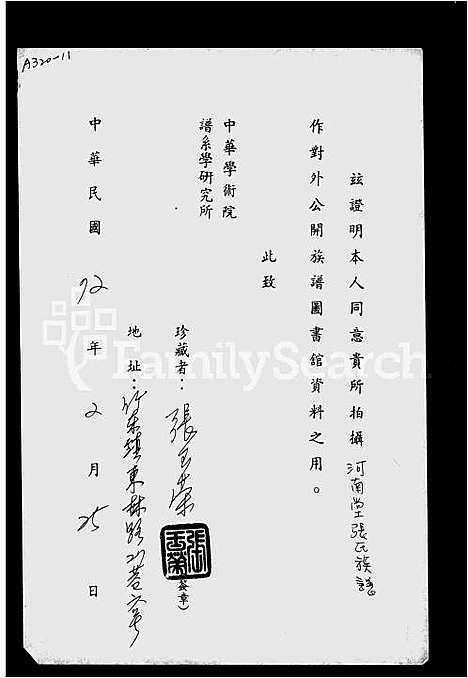 A320-11
茲證明本人同意貴所拍攝河南堂張氏族譜
作對外公開族譜圖書館資料之用。
此致
中華學術院
譜系學研究所
珍藏者：張玉榮
張玉榮
(簽章)
地址：竹東鎮東林路 巷 號
中華民國72年2月25日
FamilySearch